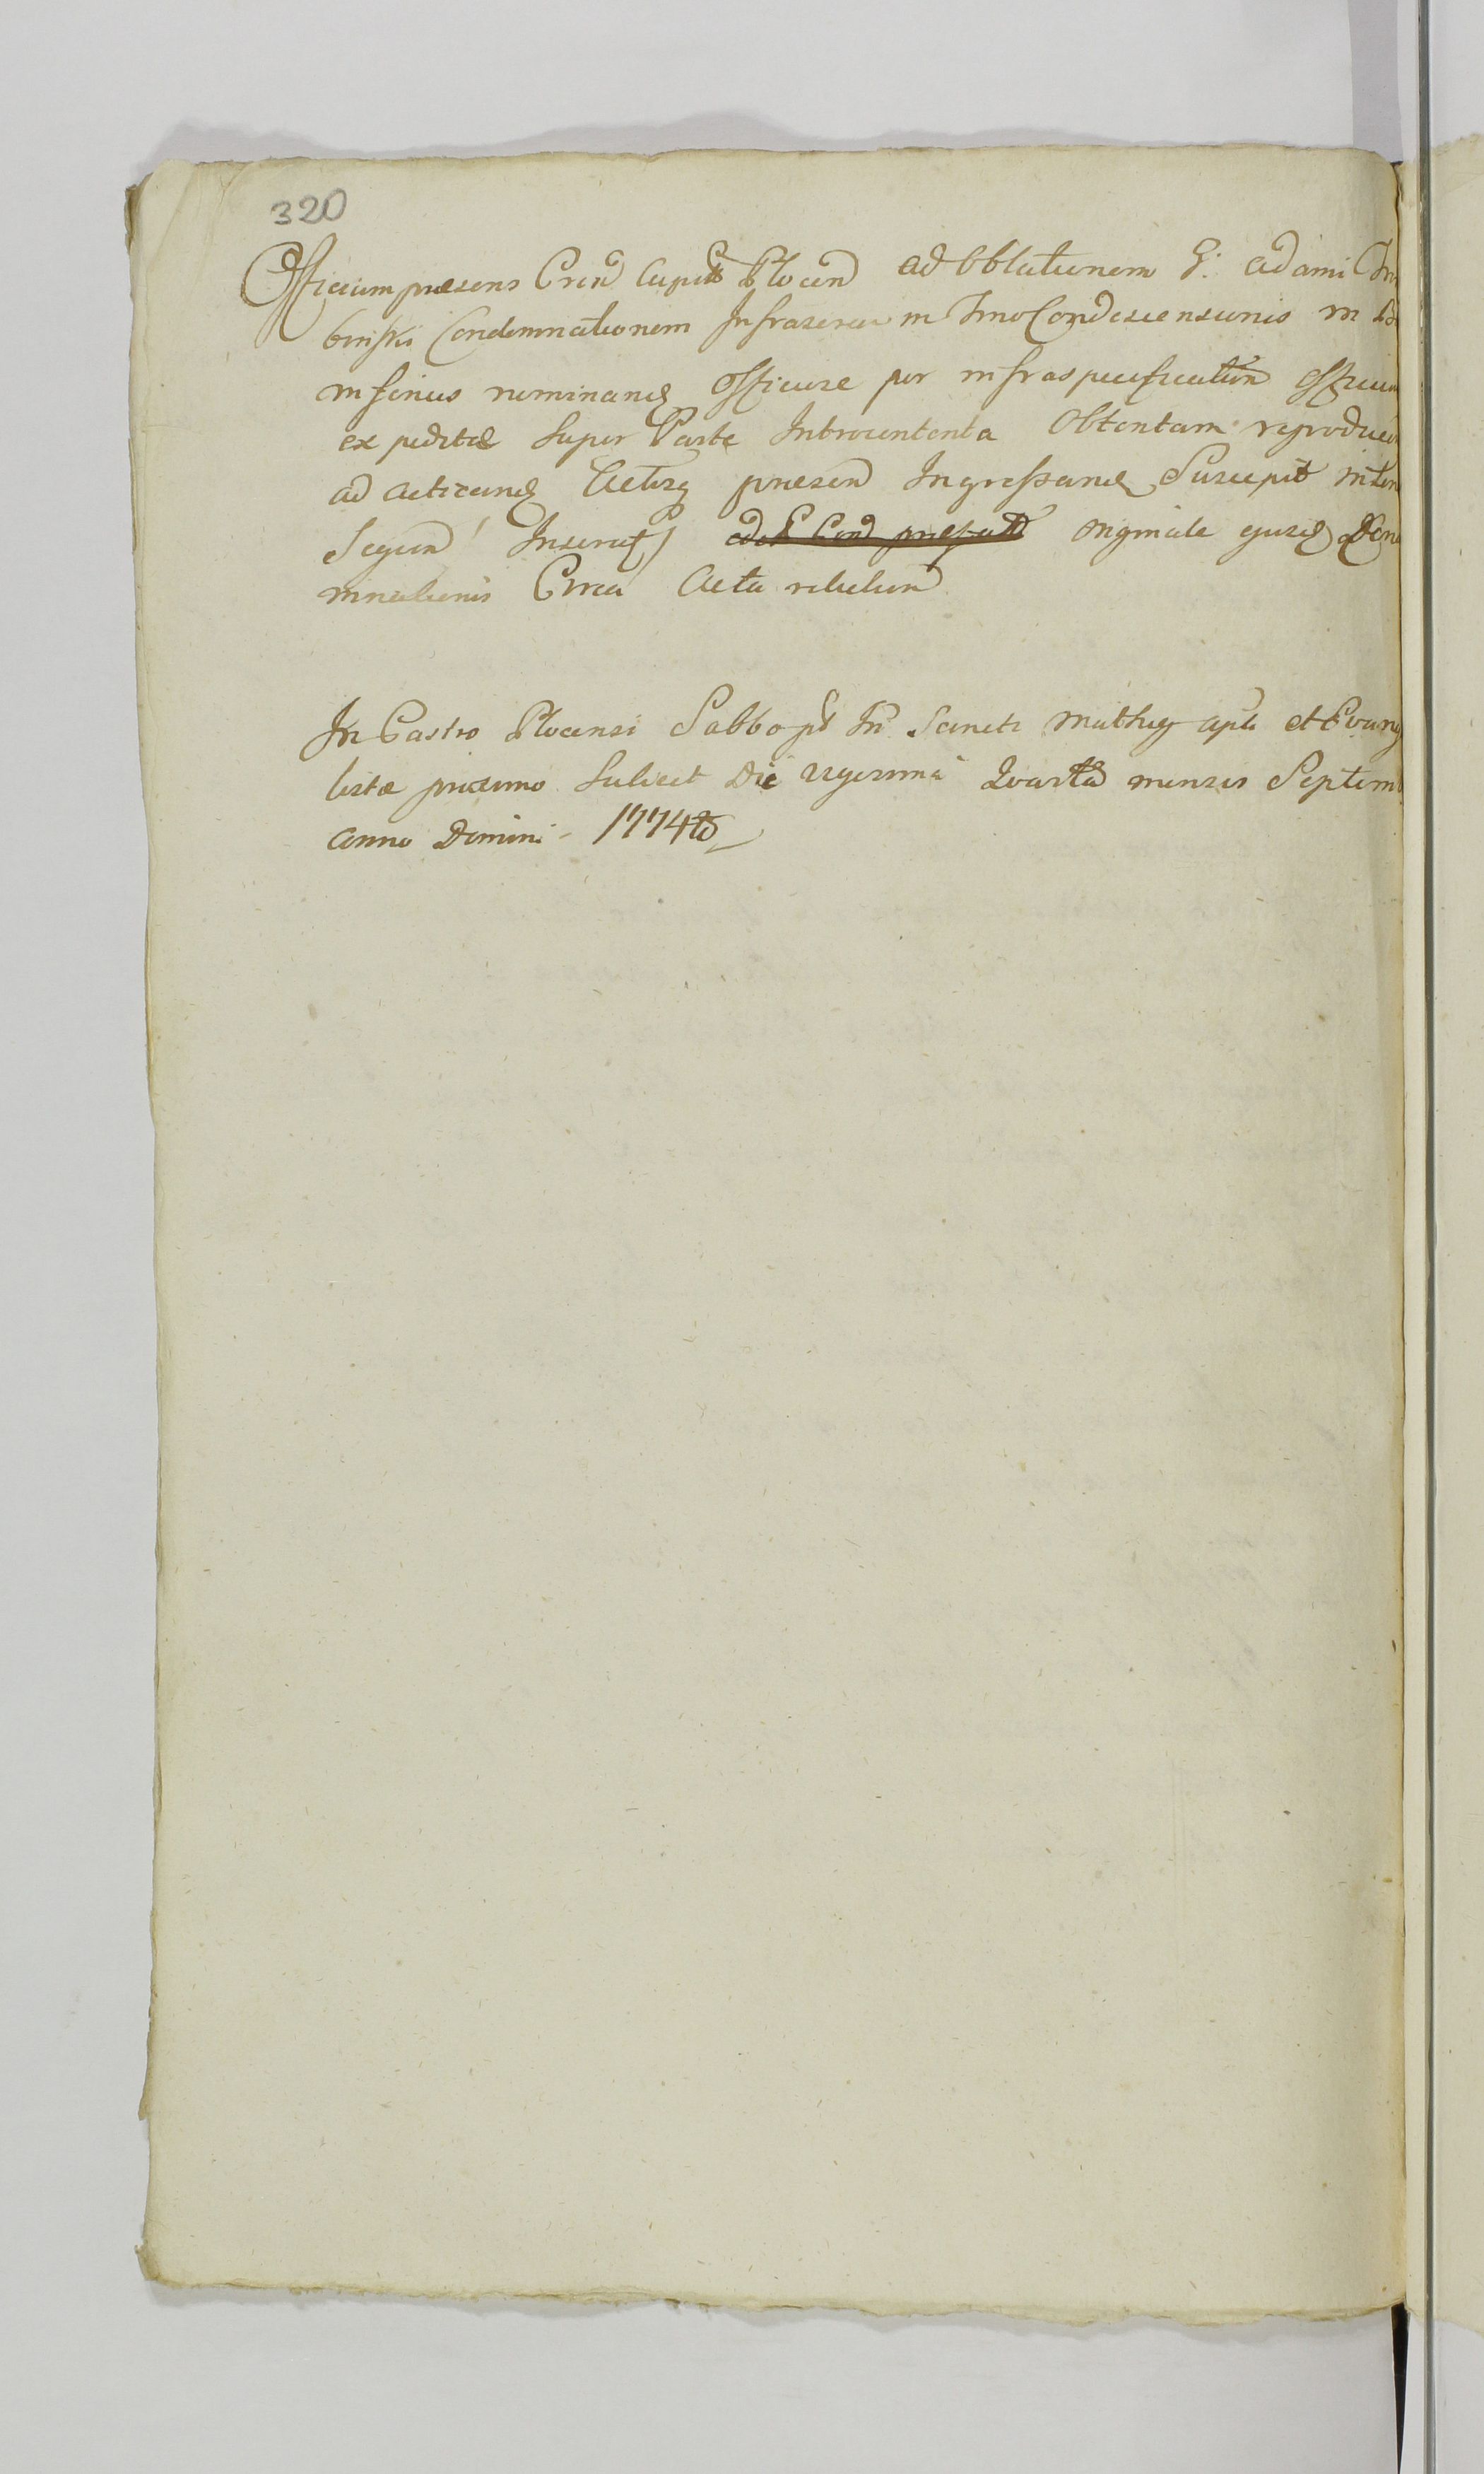 320
Officium præsens Cren Capitt Plocen ad Oblationem G: Adami
binski Condemnationem Infrascrn in Tmo Condescensionis in
inferius nominand Officiose per infraspecificatum Officium
expeditæ super Parte Introcontenta Obtentam reproduc
ad acticand Actisq præsen Ingrossand Suscepit in ten
Sequen Inseruit originale ejusd Con
mnationis Circa Acta relictum
In Castro Plocensi Sabbo pt Fm Sancti Mathej Apli et Evang
listæ proximo Scilicet Die vigesima Quarta mensis Septem
Anno Domini 1774to